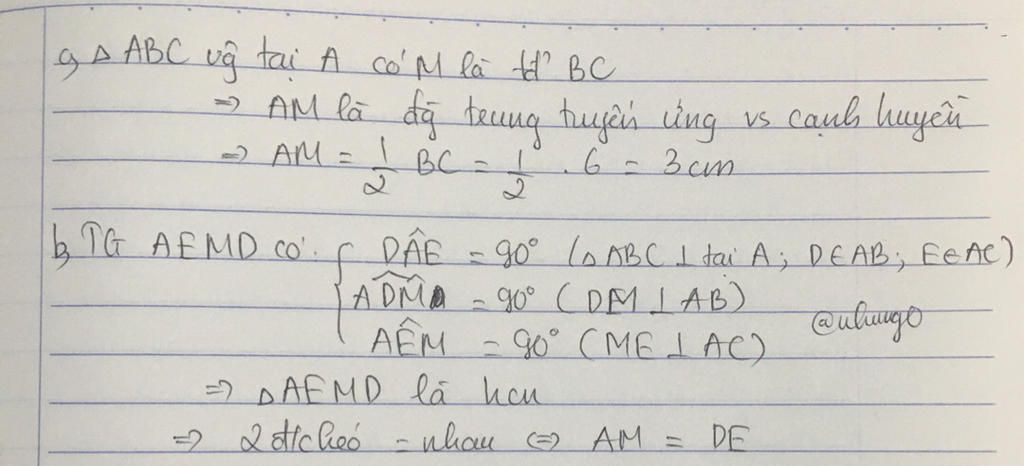 a, Δ ABC vg tại A có M là tđ BC
⇒ AM là đg trung tuyến ứng vs cạnh huyền
⇒ AM = 1/2 BC = 1/2 . 6 = 3cm
b, TG AEMD có: { DÂE = 90° (Δ ABC ⊥ tại A; D∈AB; E∈AC)
ADM = 90° (DM ⊥ AB)
AÊM = 90° (ME ⊥ AC)
@nhungo
⇒ Δ AEMD là hcn
⇒ 2 đ/c chéo = nhau ⇔ AM = DE